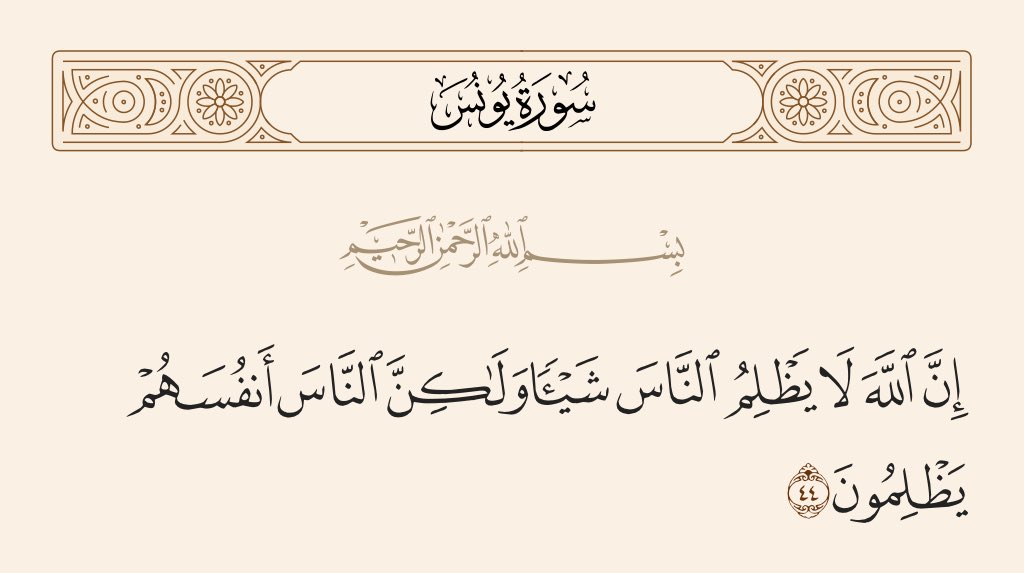 سُورَةُ يُونُسَ
بِسْمِ ٱللَّهِ ٱلرَّحْمَٰنِ ٱلرَّحِيمِ
إِنَّ ٱللَّهَ لَا يَظْلِمُ ٱلنَّاسَ شَيْـًٔا وَلَـٰكِنَّ ٱلنَّاسَ أَنفُسَهُمْ
يَظْلِمُونَ ٤٤